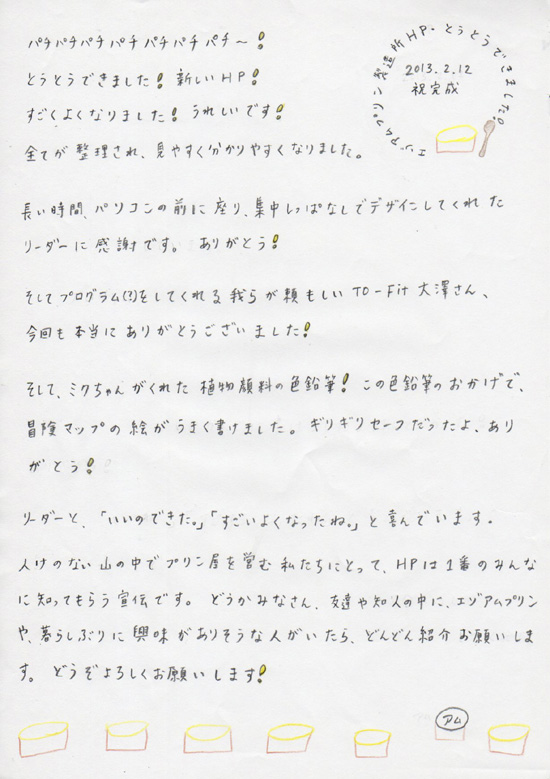 パチパチパチパチパチパチパチ〜!
とうとうできました!新しいHP!
すごくよくなりました!うれしいです!
全てが整理され、見やすく分かりやすくなりました。
エゾアムプリン製造所HP・とうとうできました。
2013.2.12
祝完成
長い時間、パソコンの前に座り、集中しっぱなしでデザインしてくれた
リーダーに感謝です。ありがとう!
そしてプログラム(?)をしてくれる我らが頼もしいTO-Fit大澤さん、
今回も本当にありがとうございました!
そして、ミクちゃんがくれた植物顔料の色鉛筆!この色鉛筆のおかげで、
冒険マップの絵がうまく書けました。ギリギリセーフだったよ、あり
がとう!
リーダーと、「いいのできた。」「すごいよくなったね。」と喜んでいます。
人けのない山の中でプリン屋を営む私たちにとって、HPは1番のみんな
に知ってもらう宣伝です。どうかみなさん、友達や知人の中に、エゾアムプリン
や、暮らしぶりに興味がありそうな人がいたら、どんどん紹介お願いしま
す。どうぞよろしくお願いします!
アム